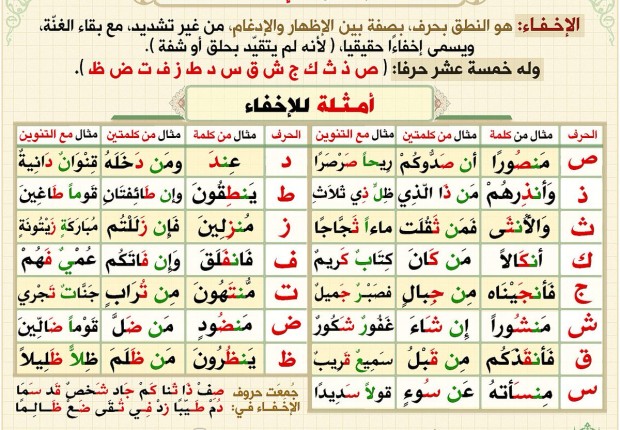 الإخفـاء: هو النطق بحرف، بصفة بين الإظهار والإدغام، من غير تشديد، مع بقاء الغنّة،
ويسمى إخفاءًا حقيقيا، ( لأنه لم يتقيّد بحلق أو شفة ).
وله خمسة عشر حرفا: ( ص ذ ث ك ج ش ق س د ط ز ف ت ض ظ ).
أمثـلة للإخفاء
الحرف مثال من كلمة مثال من كلمتين مثال مع التنوين الحرف مثال من كلمة مثال من كلمتين مثال مع التنوين
ص مَنصُورًا أَن صَدُّوكُمْ رِيحاً صَرْصَرًا د عِندَ ومَن دَخَلَهُ قِنْوَانٌ دَانِيةٌ
ذ وَأَنذِرهُمْ مَن ذَا الّذِي ظِلٍّ ذِي ثَلاَثِ ط يَنطِقُونَ وإن طَائِفتَانِ قَوماً طَاغِينَ
ث وَالْأُنثَى فَمَن ثَقُلَت ماءاً ثَجَّاجًا ز مُنزِلِينَ فَإِن زَلَلْتُم مُبَارَكَةٍ زَيْتُونَةٍ
ك أَنكَالاً مَن كَانَ كِتَابٌ كَرِيمٌ ف فَانفَلَقَ وَإِن فَاتَكُم عُمْيٌ فَهُمْ
ج فَأَنجَيْنَاه مِن جِبالٍ فَصَبْرٌ جَمِيلٌ ت مُنتَهُونَ مِن تُرَابٍ جَنَّاتٌ تَجْرِي
ش مَنشُوراً إِن شَاءَ غَفُورٌ شَكُورٌ ض مَنضُودٍ مَن ضَلَّ قَوْماً ضَالِّينَ
ق فَأَنقَذَكُم مِن قَبْلُ سَمِيعٌ قَرِيبٌ ظ يَنظُرُونَ مَن ظَلَمَ ظِلاًّ ظَلِيلاً
س مِنسَأتهُ عَن سُوءٍ قَولاً سَدِيدًا
جُمِعَت حروف الإخْفَاء في:
صِفْ ذَا ثَنا كَمْ جَادَ شَخصٌ قَد سَمَا
دُمْ طَيِّبًا زِدْ فِي تُـقَى ضَعْ ظَـالِـمًا